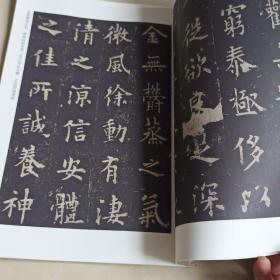 窮泰極侈以
從欲良足深
金無欝蒸之氣
微風徐動有淒
清之涼信安體
之佳所誠養神